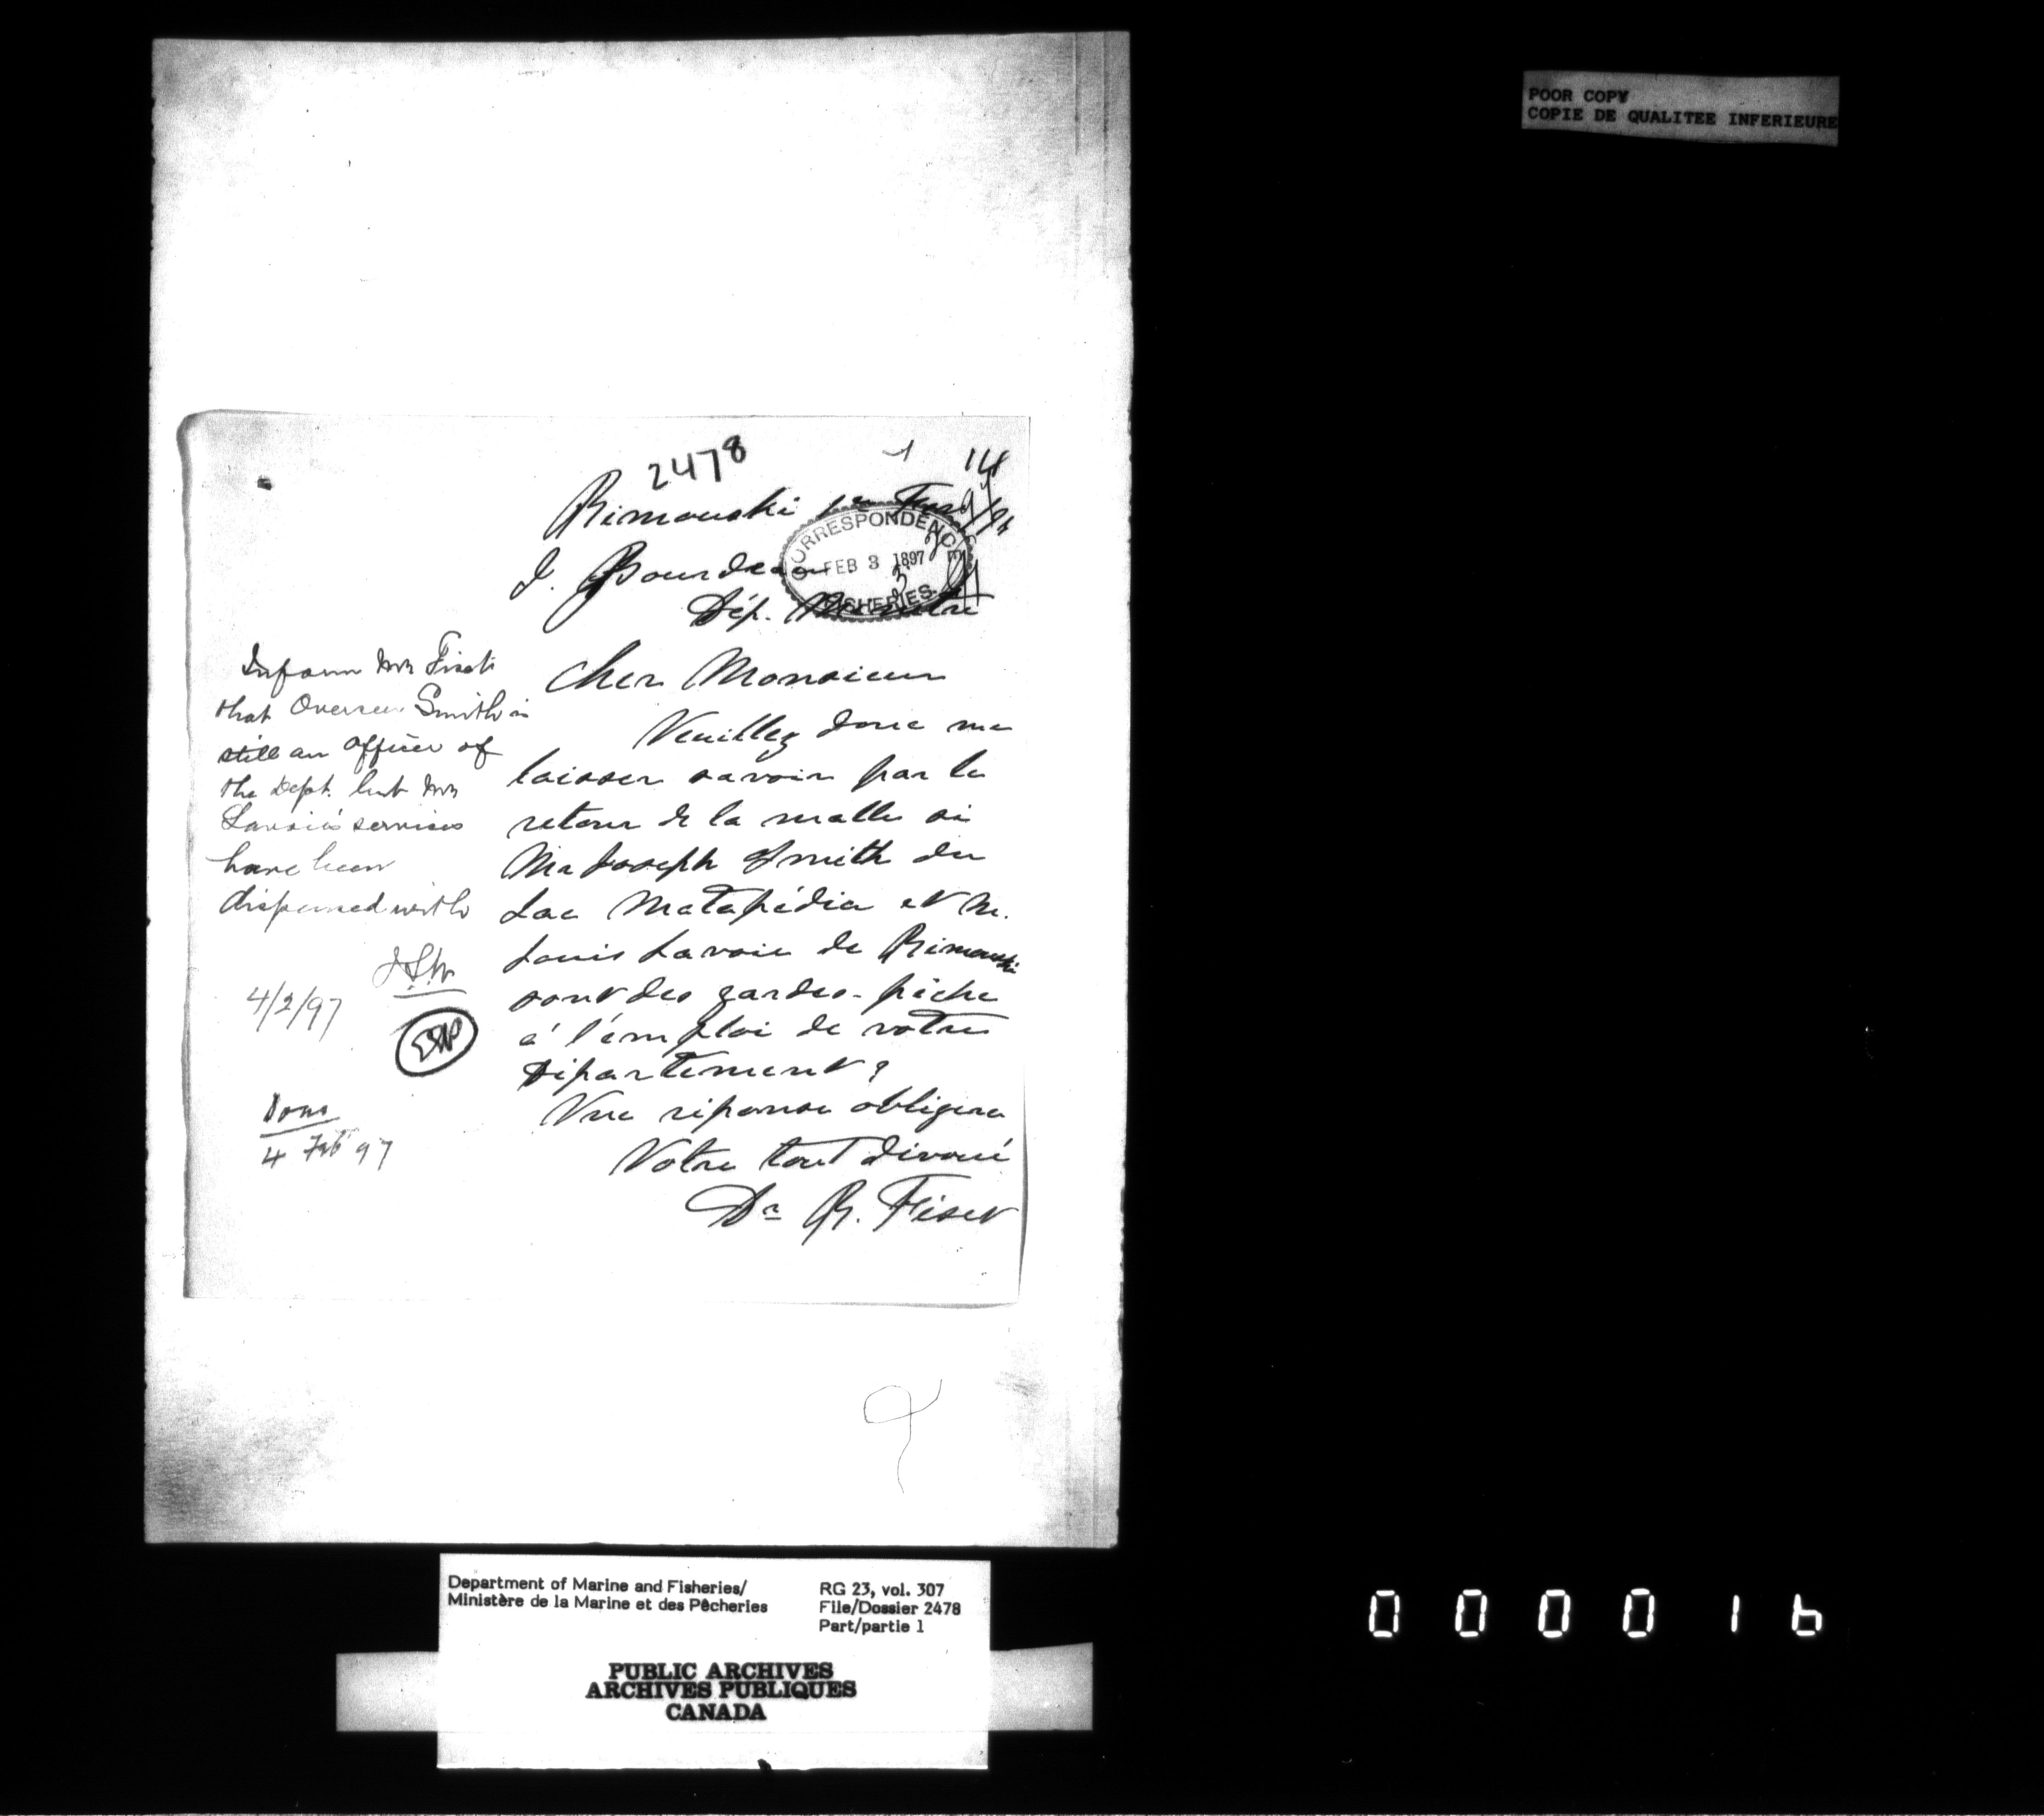 POOR COPY
COPIE DE QUALITEE INFERIEURE
2478
14
Rimouski 1er
CORRESPONDENCE
FEB 3 1897
FISHERIES
J. Gourdeau
Dép. Ministre
Cher Monsieur
Veuillez donc me
laisser savoir par le
retour de la malle si
Mr Joseph Smith du
Lac Matapédia et M.
Louis Lavoie de Rimouski
sont des gardes-pêche
à l'emploi de votre
département?
Une réponse obligera
Votre tout dévoué
Dr R. Fiset
Inform Mr Fiset
that Overseer Smith is
still an officer of
the Dept. but Mr
Lavoie's services
have been
dispensed with
4/2/97
Done
4 Feb 97
Department of Marine and Fisheries/
Ministère de la Marine et des Pêcheries
RG 23, vol. 307
File/Dossier 2478
Part/partie 1
PUBLIC ARCHIVES
ARCHIVES PUBLIQUES
CANADA
000016